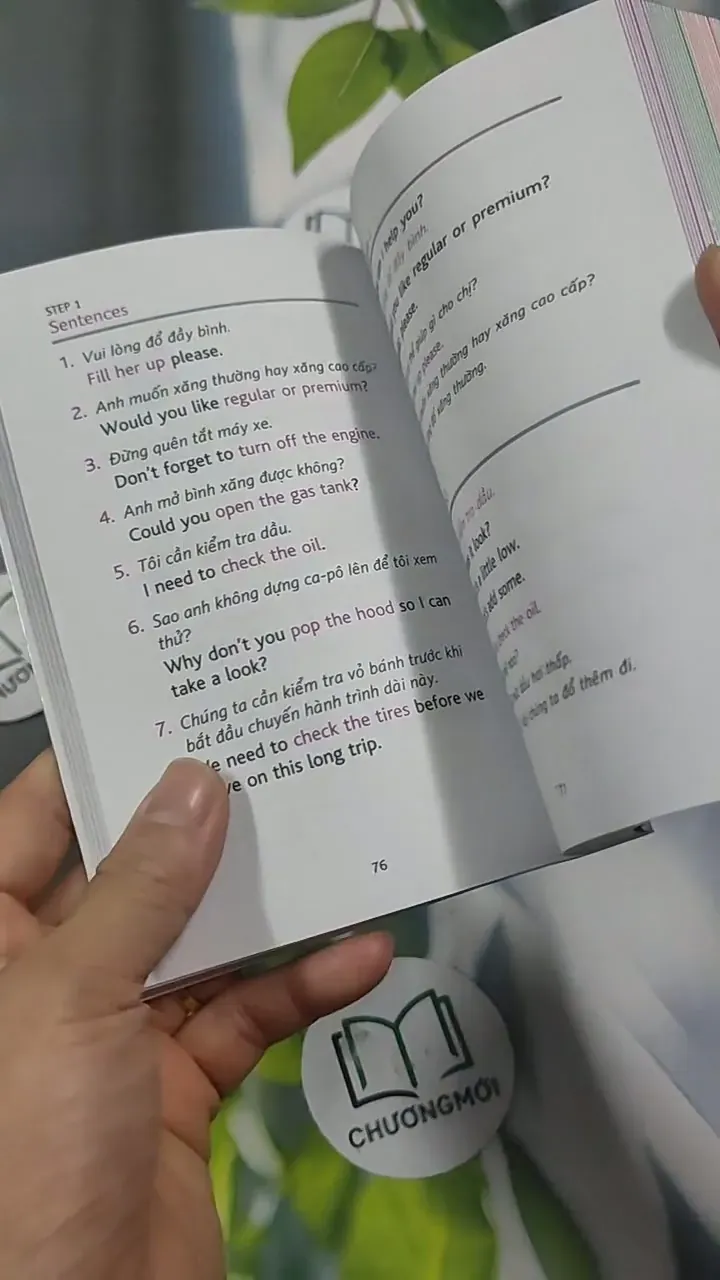 STEP 1
Sentences
1. Vui lòng đổ đầy bình.
Fill her up please.
2. Anh muốn xăng thường hay xăng cao cấp?
Would you like regular or premium?
3. Đừng quên tắt máy xe.
Don't forget to turn off the engine.
4. Anh mở bình xăng được không?
Could you open the gas tank?
5. Tôi cần kiểm tra dầu.
I need to check the oil.
6. Sao anh không dựng ca-pô lên để tôi xem
thử?
Why don't you pop the hood so I can
take a look?
7. Chúng ta cần kiểm tra vỏ bánh trước khi
bắt đầu chuyến hành trình dài này.
need to check the tires before we
on this long trip.
76
help you?
đầy bình.
like regular or premium?
please.
giúp gì cho chị?
please.
xăng thường hay xăng cao cấp?
xăng thường.
tra dầu.
look?
little low.
add some.
check the oil.
dầu hơi thấp.
chúng ta đổ thêm đi.
77
CHƯƠNGMỚI